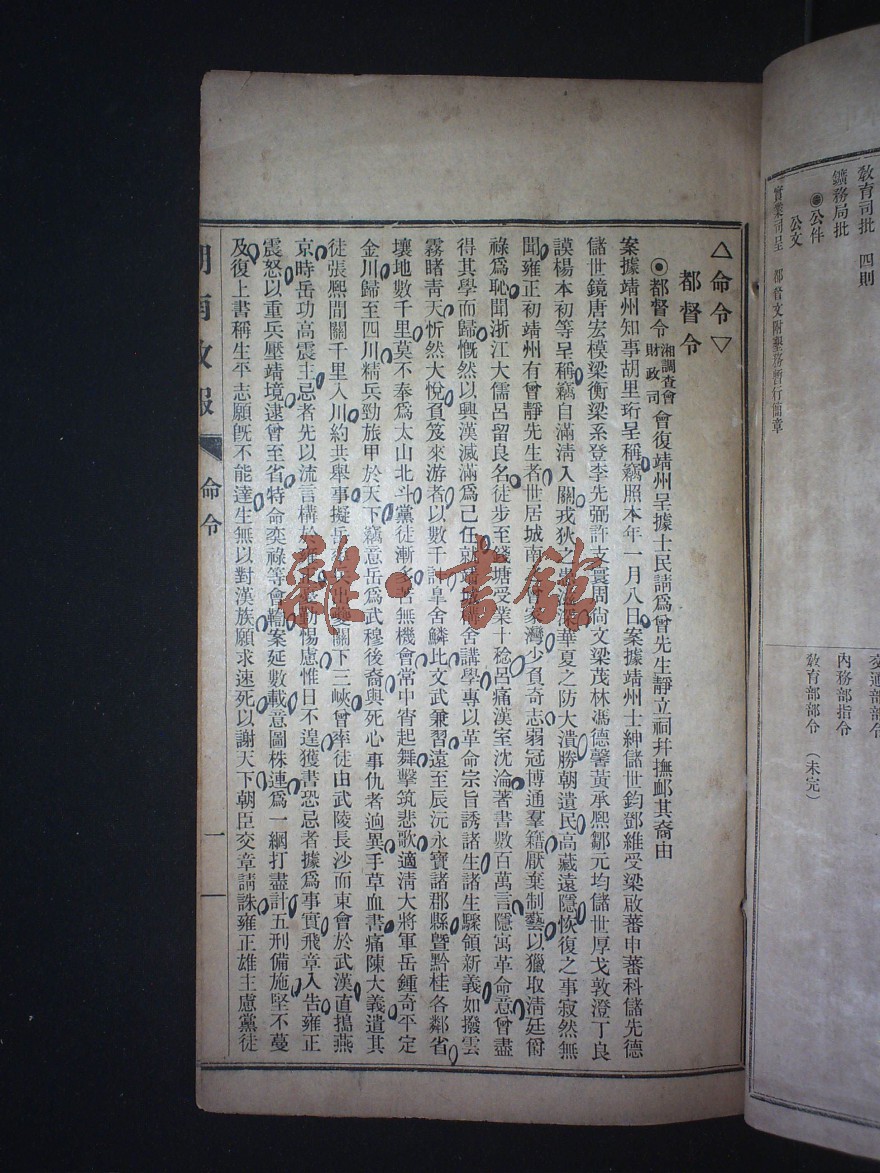 敎育司批 四則
鑛務局批
◉公件
公文
實業司呈 都督文附墾務暫行簡章
交通部部令
內務部指令
敎育部部令 (未完)
△命令▽
都督令
◉都督令 湘調查會 財政司 會復靖州呈據士民請爲曾先生靜立祠幷撫卹其裔由
案據靖州知事胡里珩呈稱竊照本年一月八日案據靖州士紳儲世鈞鄧維受梁啟蕃申蕃科儲先德
儲世鏡唐宏模梁衡梁系登李先弼許支寰周尙文梁茂林馮德馨黃承熙鄒元均儲世厚戈敦澄丁良
謨楊本初等呈稱竊自滿淸入關戎狄之 華夏之防大潰勝朝遺民高藏遠隱恢復之事寂然無
聞雍正初靖州有曾靜先生者世居城南 家灣少負奇志弱冠博通羣籍厭棄制藝以獵取淸廷爵
祿爲恥聞浙江大儒呂留良名徒步至錢塘受業十稔呂痛漢室沈淪著書數百萬言隱寓革命意曾盡
得其學而歸慨然以興漢滅滿爲己任就 舍講學專以革命宗旨誘諸生諸生驟領新義如撥雲
霧睹青天忻然大悅負笈來游者以數千計 舍鱗比文武兼習遠至辰沅永寶諸郡縣曁黔桂各鄰省
壤地數千里莫不奉爲太山北斗黨徒漸多 無機會常中宵起舞擊筑悲歌適淸大將軍岳鍾奇平定
金川歸至四川精兵勁旅甲於天下竊意岳爲武穆後裔與死心事仇者逈異手草血書痛陳大義遣其
徒張熙間關千里入川約共舉事擬岳 出夔關下三峽曾率徒由武陵長沙而東會於武漢直搗燕
京時岳功高震主忌者先以流言構於 惕慮惟日不遑獲書恐忌者據爲事實飛章入告雍正
震怒以重兵壓靖境逮曾至省特命奕祿等會鞫案延數載意圖株連爲一綱打盡計五刑備施堅不蔓
及復上書稱生平志願旣不能達生無以對漢族願求速死以謝天下朝臣交章請誅雍正雄主慮黨徒
湖南政報
命令
一
雜·書館